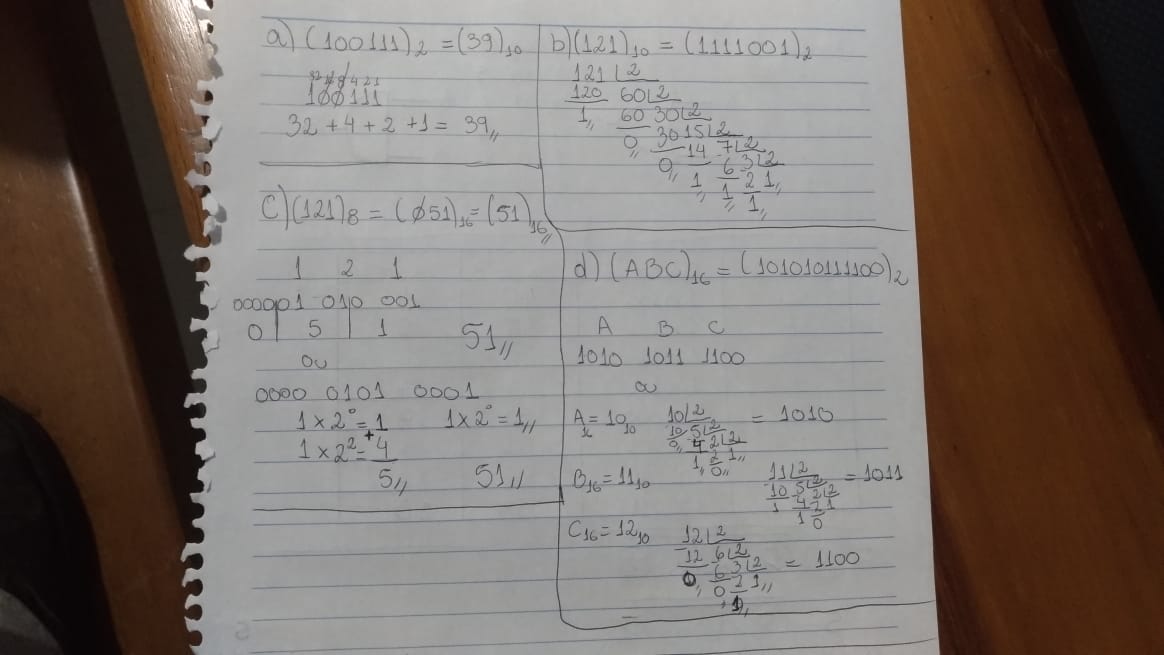 a) (100111)₂ = (39)₁₀
32 16 8 4 2 1
100111
32 + 4 + 2 + 1 = 39,,
b) (121)₁₀ = (1111001)₂
121 2
120 60 2
1,, 60 30 2
0,, 30 15 2
0,, 14 7 2
1,, 6 3 2
1,, 2 1,,
1,,
C) (121)₈ = (051)₁₆ = (51)₁₆,,
1 2 1
000001 010 001
0 5 1 51,,
ou
0000 0101 0001
1 x 2⁰ = 1 1 x 2⁰ = 1,,
+
1 x 2² = 4
5,, 51,,
d) (ABC)₁₆ = (101010111100)₂
A B C
1010 1011 1100
ou
A₁₆ = 10₁₀ 10 2 = 1010
10 5 2
0,, 4 2 2
1,, 2 1,,
0,,
B₁₆ = 11₁₀ 11 2 = 1011
10 5 2
1 4 2 2
1 2 1
0
C₁₆ = 12₁₀ 12 2
12 6 2 = 1100
0,, 6 3 2
0,, 2 1,,
1,,